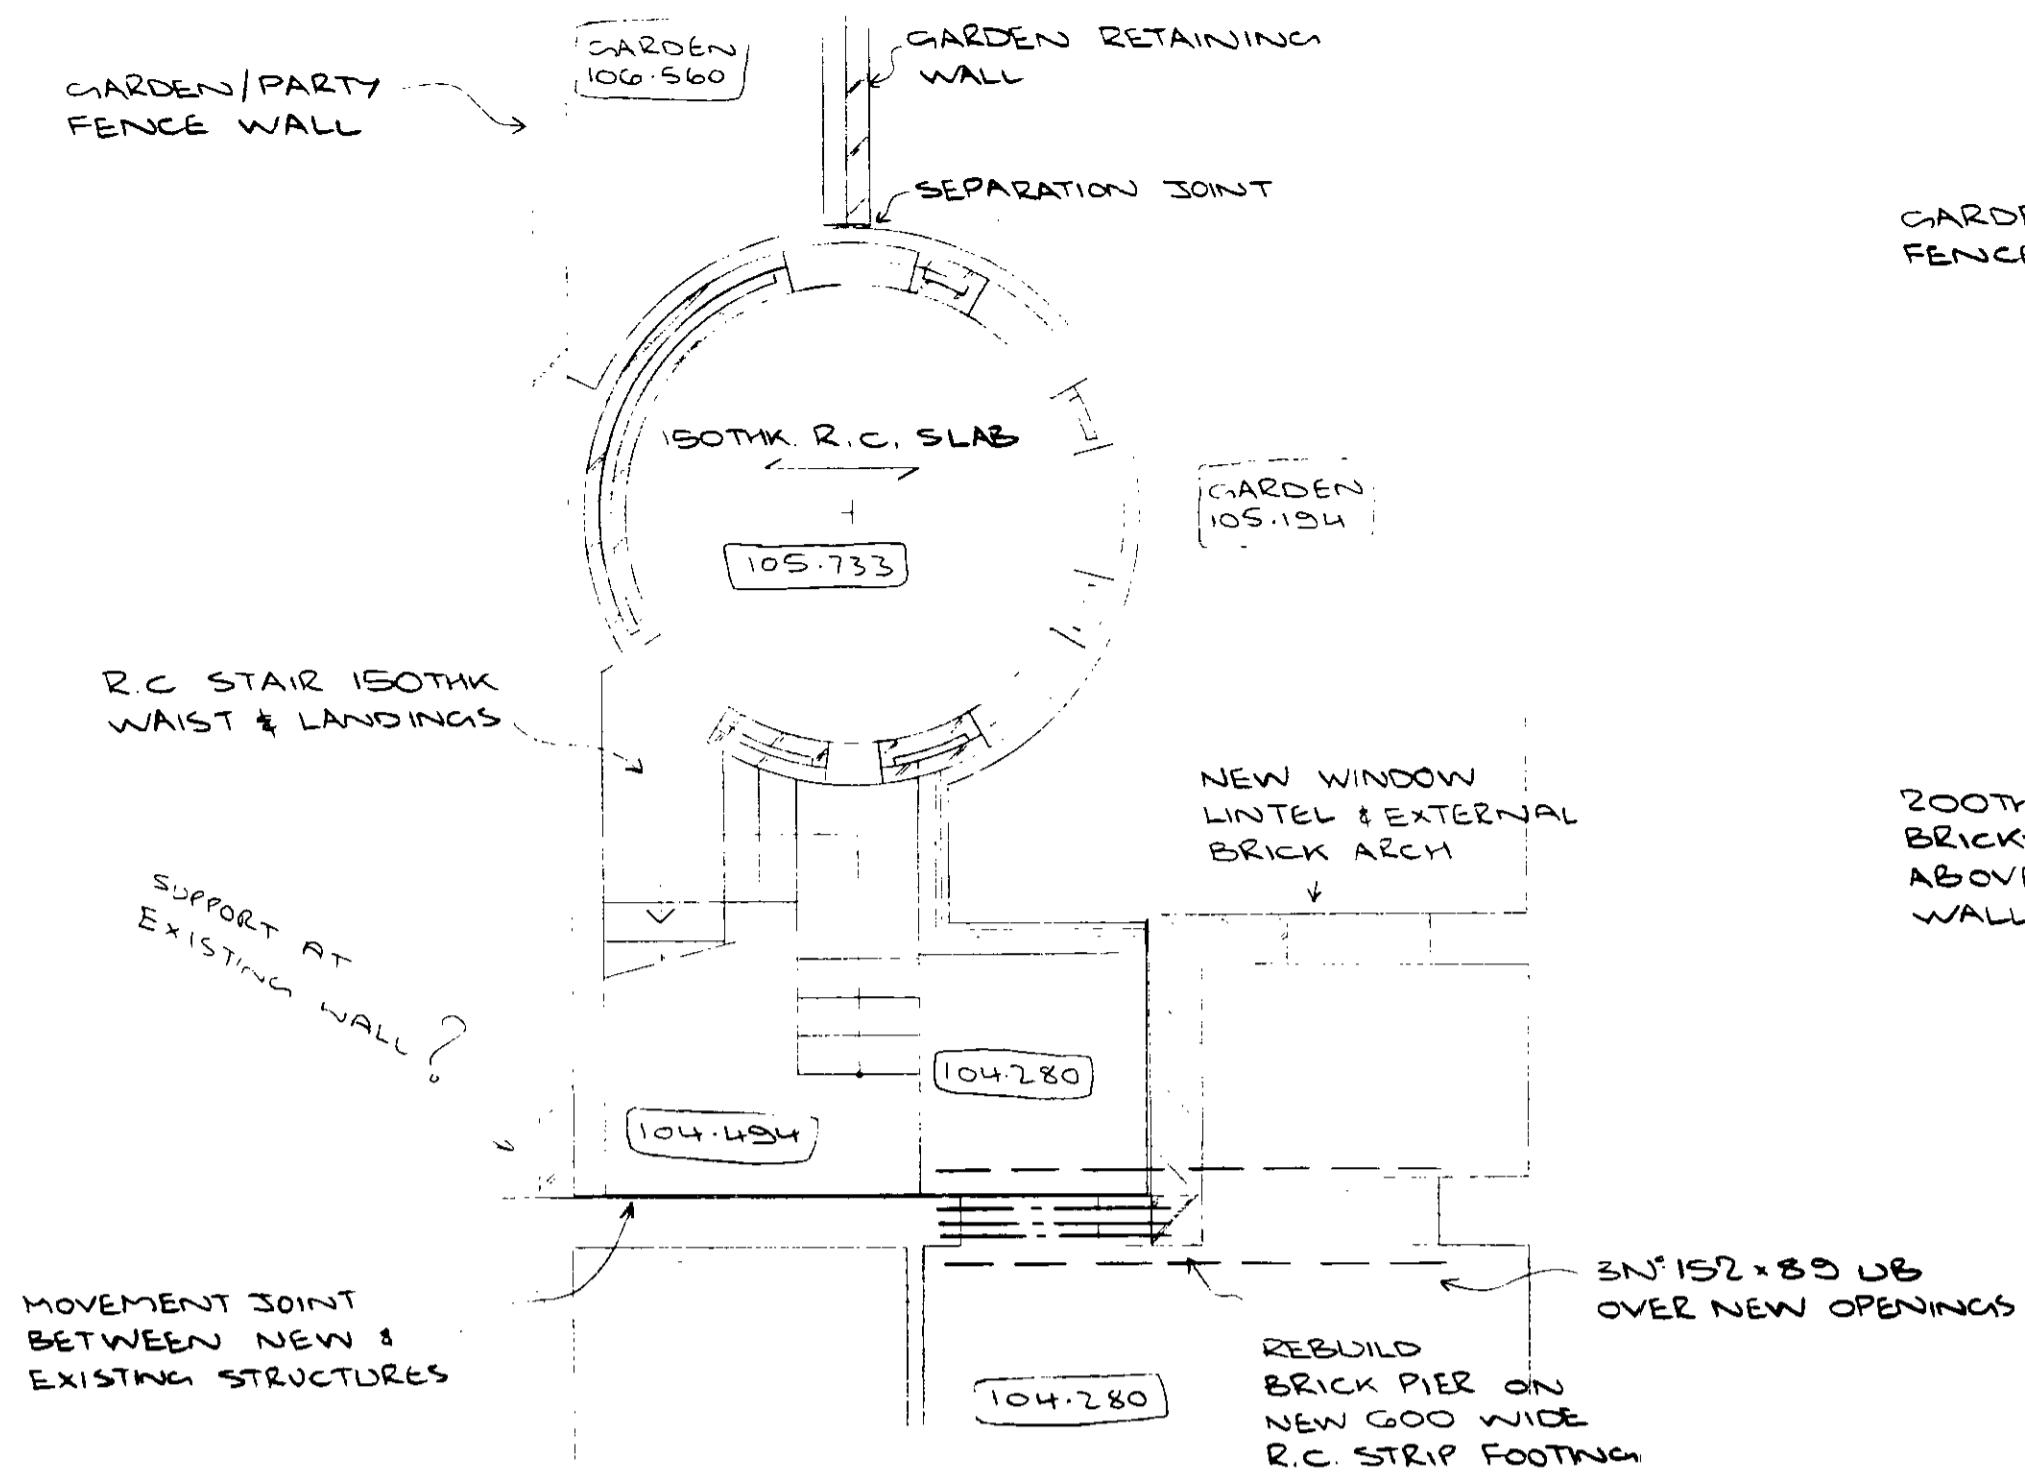 GARDEN
106.560
GARDEN RETAINING
WALL
GARDEN/PARTY
FENCE WALL
SEPARATION JOINT
GARDE
FENCE
150THK. R.C. SLAB
GARDEN
105.194
105.733
R.C STAIR 150THK
WAIST & LANDINGS
NEW WINDOW
LINTEL & EXTERNAL
BRICK ARCH
200TH
BRICK
ABOVE
WALL
SUPPORT AT
EXISTING WALL ?
104.280
104.494
MOVEMENT JOINT
BETWEEN NEW &
EXISTING STRUCTURES
3Nº 152 x 89 UB
OVER NEW OPENINGS
REBUILD
BRICK PIER ON
NEW 600 WIDE
R.C. STRIP FOOTING
104.280